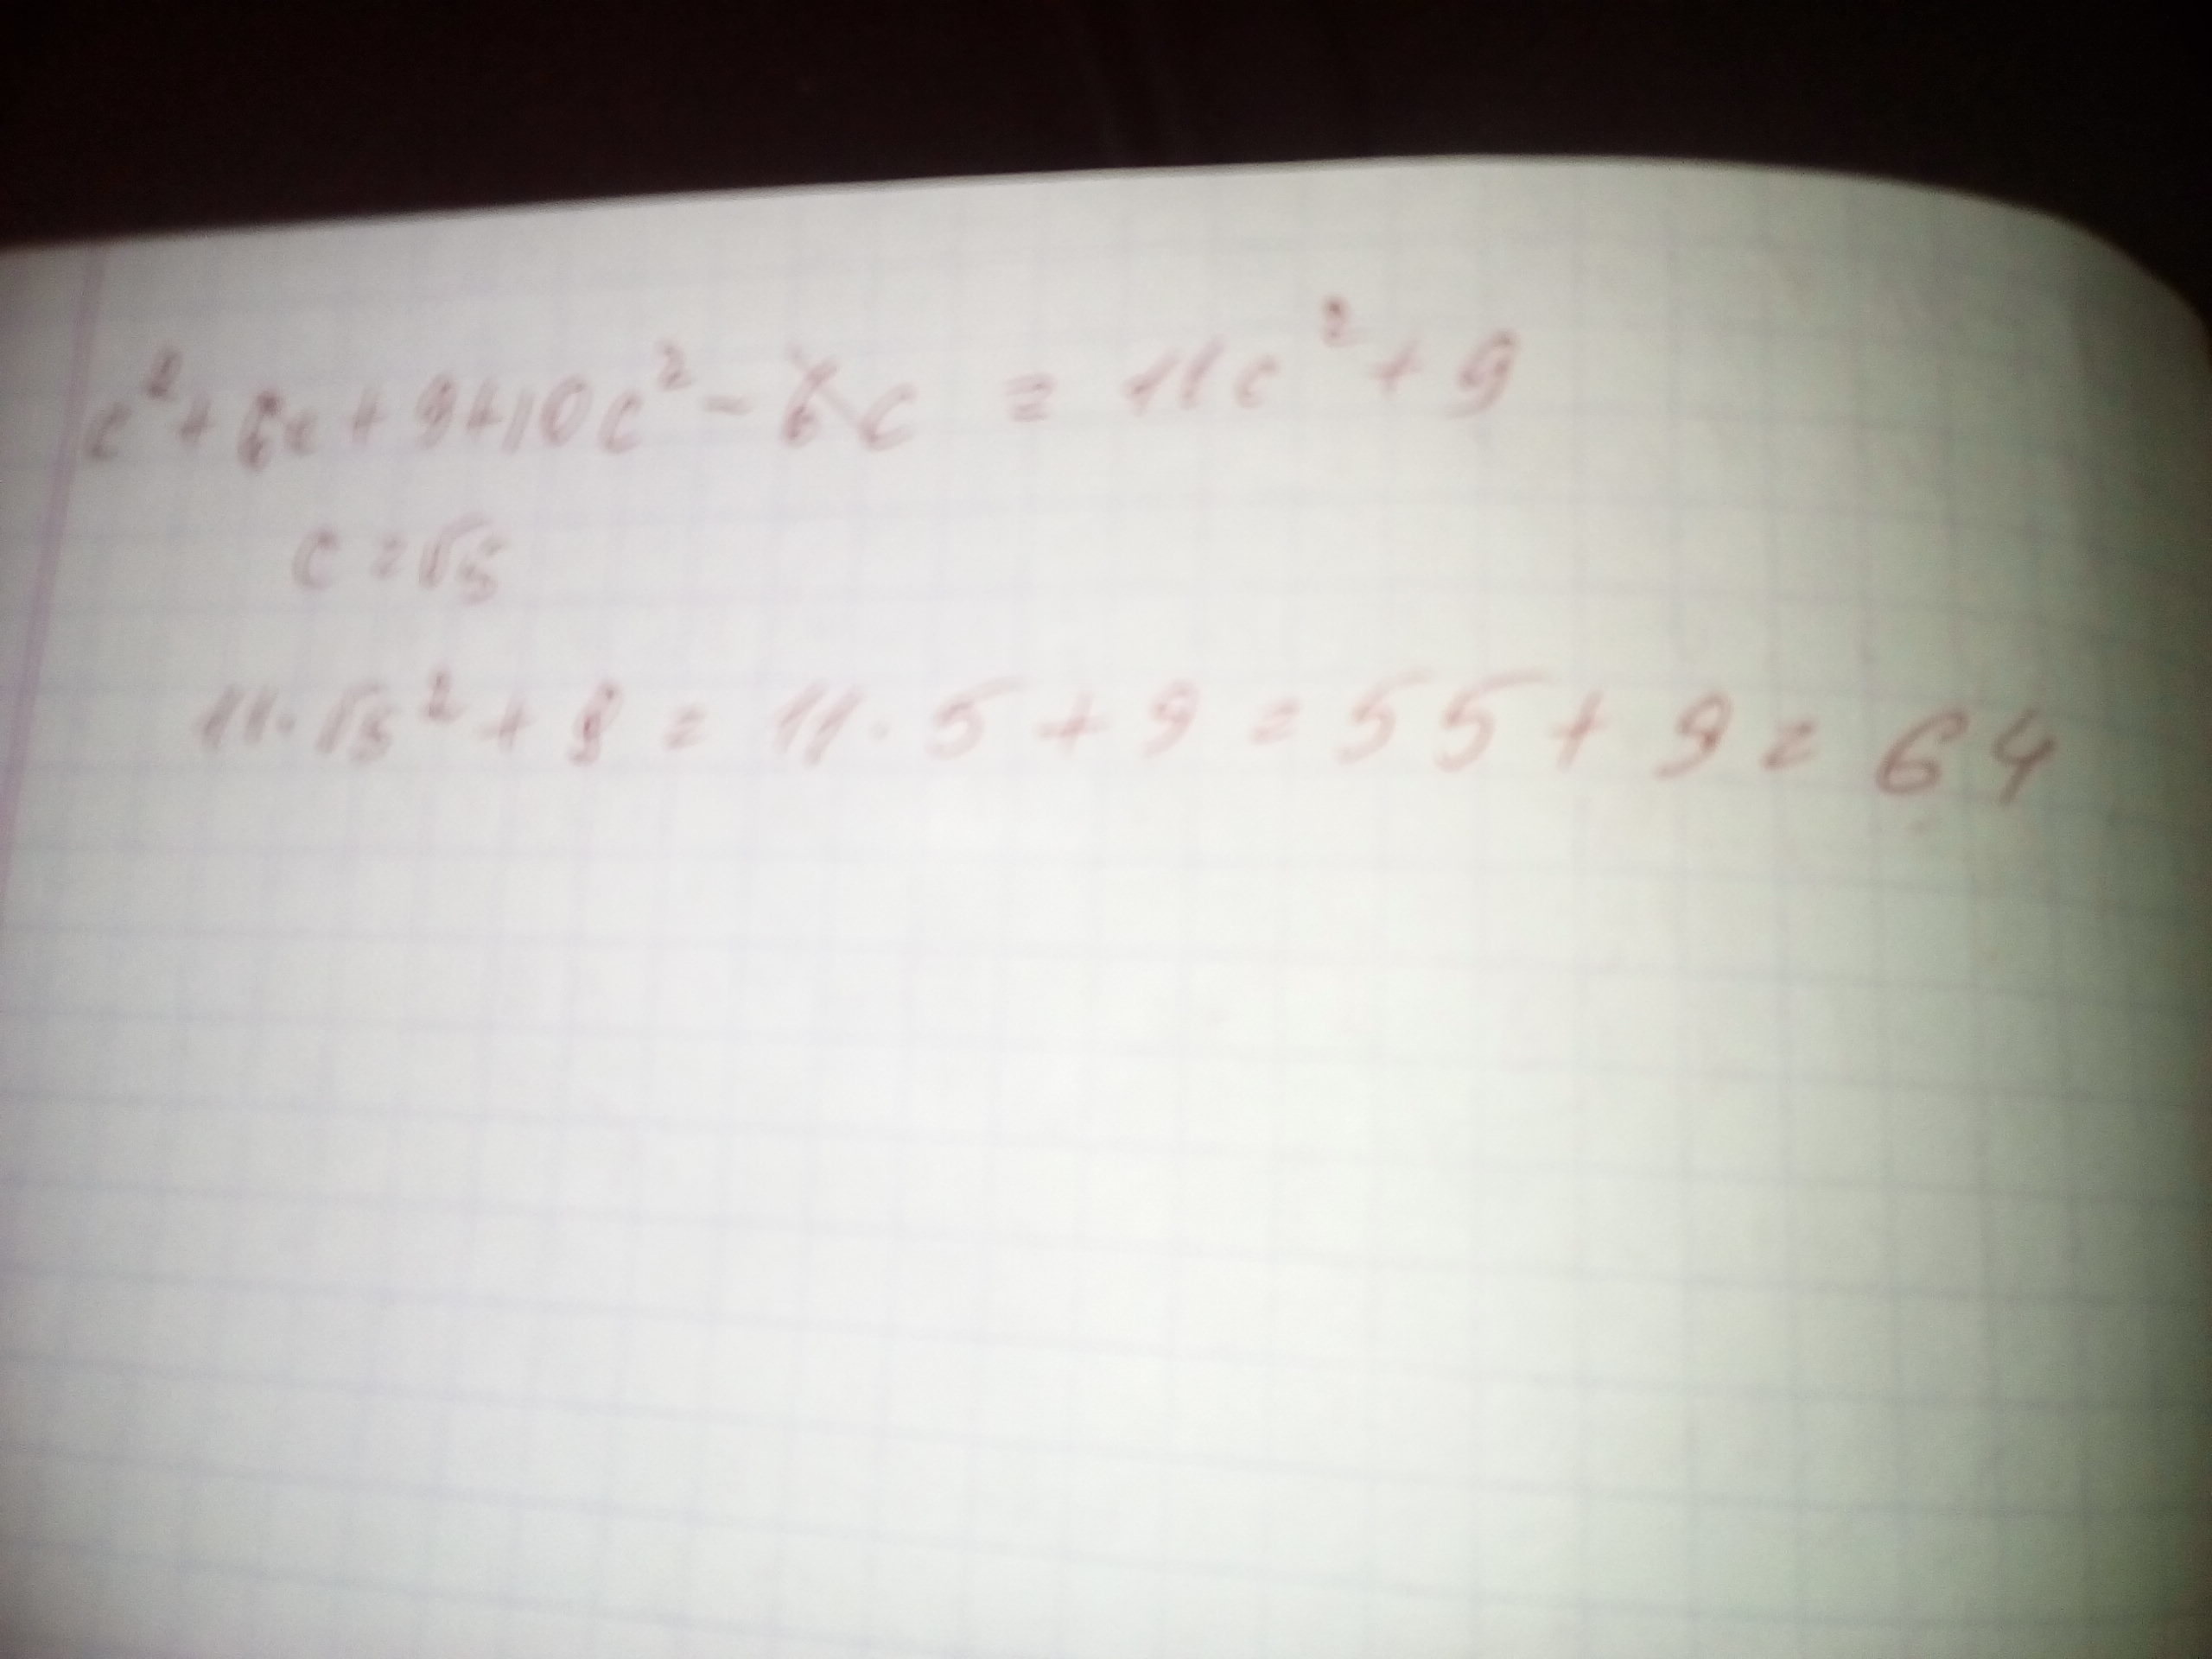 c² + 6c + 9 + 10c² - 6c = 11c² + 9
c = √5
11 · √5² + 9 = 11 · 5 + 9 = 55 + 9 = 64